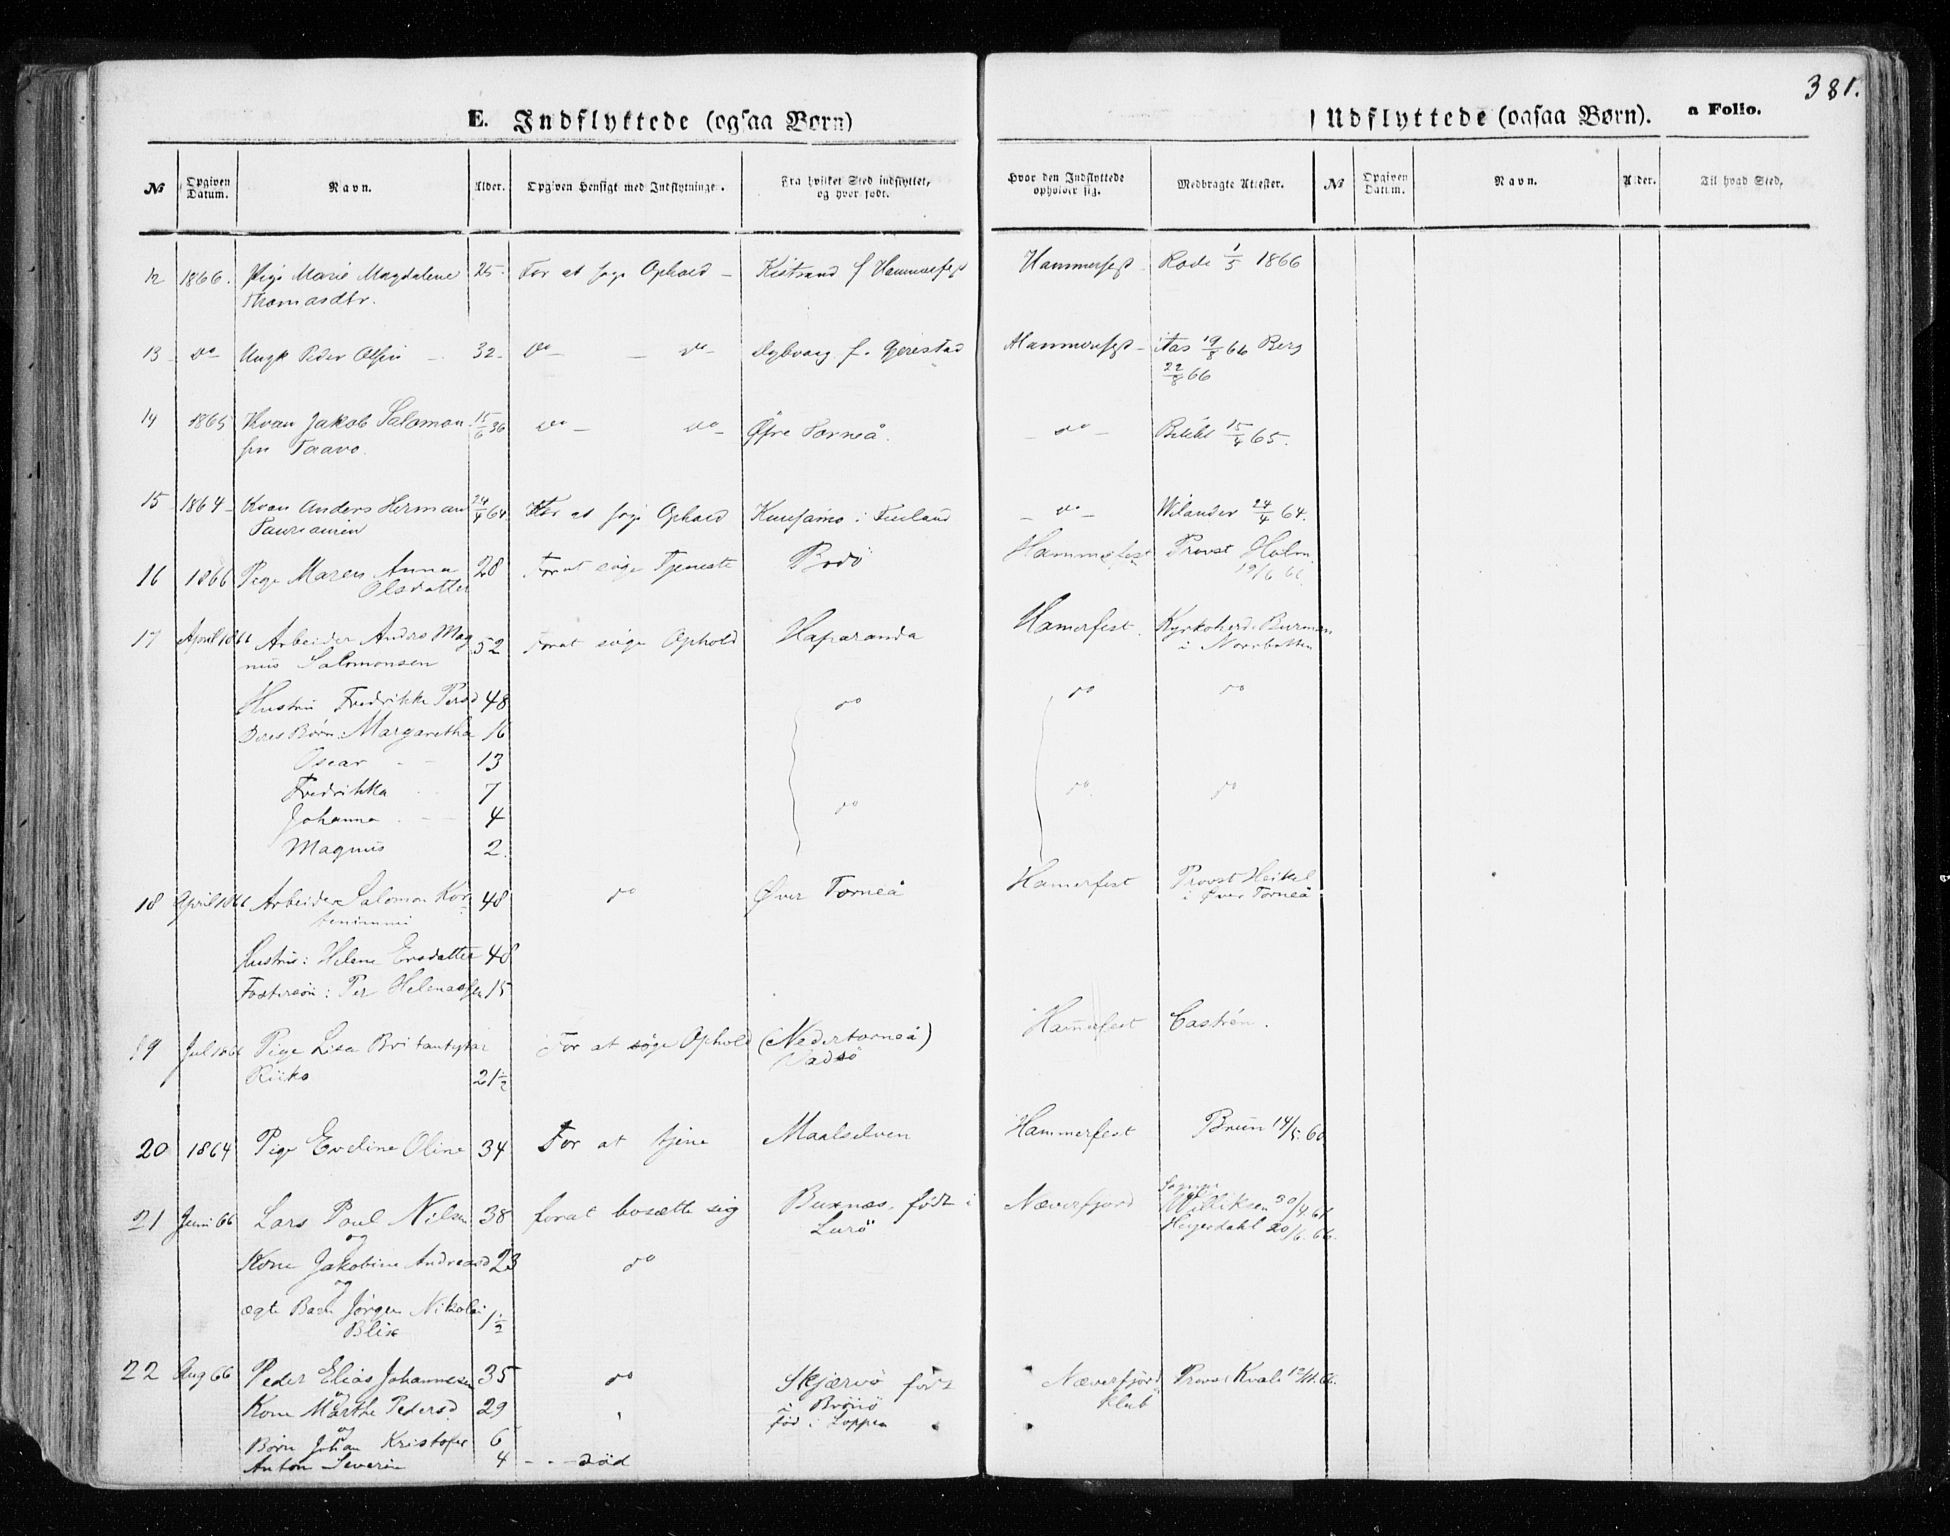 381.
E. Indflyttede (ogsaa Børn)
Udflyttede (ogsaa Børn). a Folio.
№ Opgiven Datum. Navn. Alder. Opgiven Hensigt med Indflytningen. Fra hvilket Sted indflyttet, og hvor født. Hvor den Indflyttede opholder sig. Medbragte Attester. № Opgiven Datum. Navn. Alder. Til hvad Sted.
12 1866. Pige Marie Magdalene 25. For at søge Ophold – Kistrand f Hammerfest Hammerfest Rode 1/5 1866
Thomasdtr.
13 do Ungk Peder Olsen 32 do – do Dybvaag f. Gjerestad Hammerfest 19/8 66 Berg
22/8 66
14 1865 Kvæn Jakob Salomon 15/6 36 do – do Øfre Torneå. do 15/4 65.
sen Taavo.
15 1864 Kvæn Anders Herman 24/4 64 For at søge Ophold Kuusamo i Finland do Wilander 24/4 64.
Tauriainen
16 1866 Pige Maren Anna 28 For at søge Tjeneste Bodö Hammerfest Provst Holm
Olsdatter 19/6 66.
17 April 1866 Arbeider Anders Mag 52 For at søge Ophold Haparanda Hamerfest. Kyrkoherde Burman
nus Salomonsen i Norrbotten
Hustru Fredrikke Persd 48 do do do
Deres Børn: Margaretha 16
Oscar 13
Fredrikka 7 do do
Johanna 4 do
Magnus 2.
18 April 1866 Arbeider Salomon Kor 48 do Øver Torneå Hamerfest Provst Heikel
teniemi i Øver Torneå
Hustru: Helene Ersdatter 48
Fostersøn: Per Helenasen 15
19 Jul 1866 Pige Lisa Brita For at søge Ophold (Nedertorneå) Hamerfest Castrén.
Riiko 21½ Vadsö
20 1864 Pige Eveline Oline 34 For at tjene Maalselven Hammerfest Brun 14/5. 60
21 Juni 66 Lars Poul Nilsen 38 for at bosætte sig Buxnæs, født i Næverfjord Willeksen 30/4. 66
og Lurö Heyerdahl 20/6. 66.
Kone Jakobine Andreasd 23 do
og
ægte Barn Jørgen Nikolai 1½
Blix
22 Aug 66 Peder Elias Johannesen 35 do Skjærvö født Næverfjord Provst Kvale
og i Brönö Klub
Kone Marthe Pedersd. 29 fød i Loppen
og
Børn Johan Kristofer 6
Anton Severin 4 - - - död